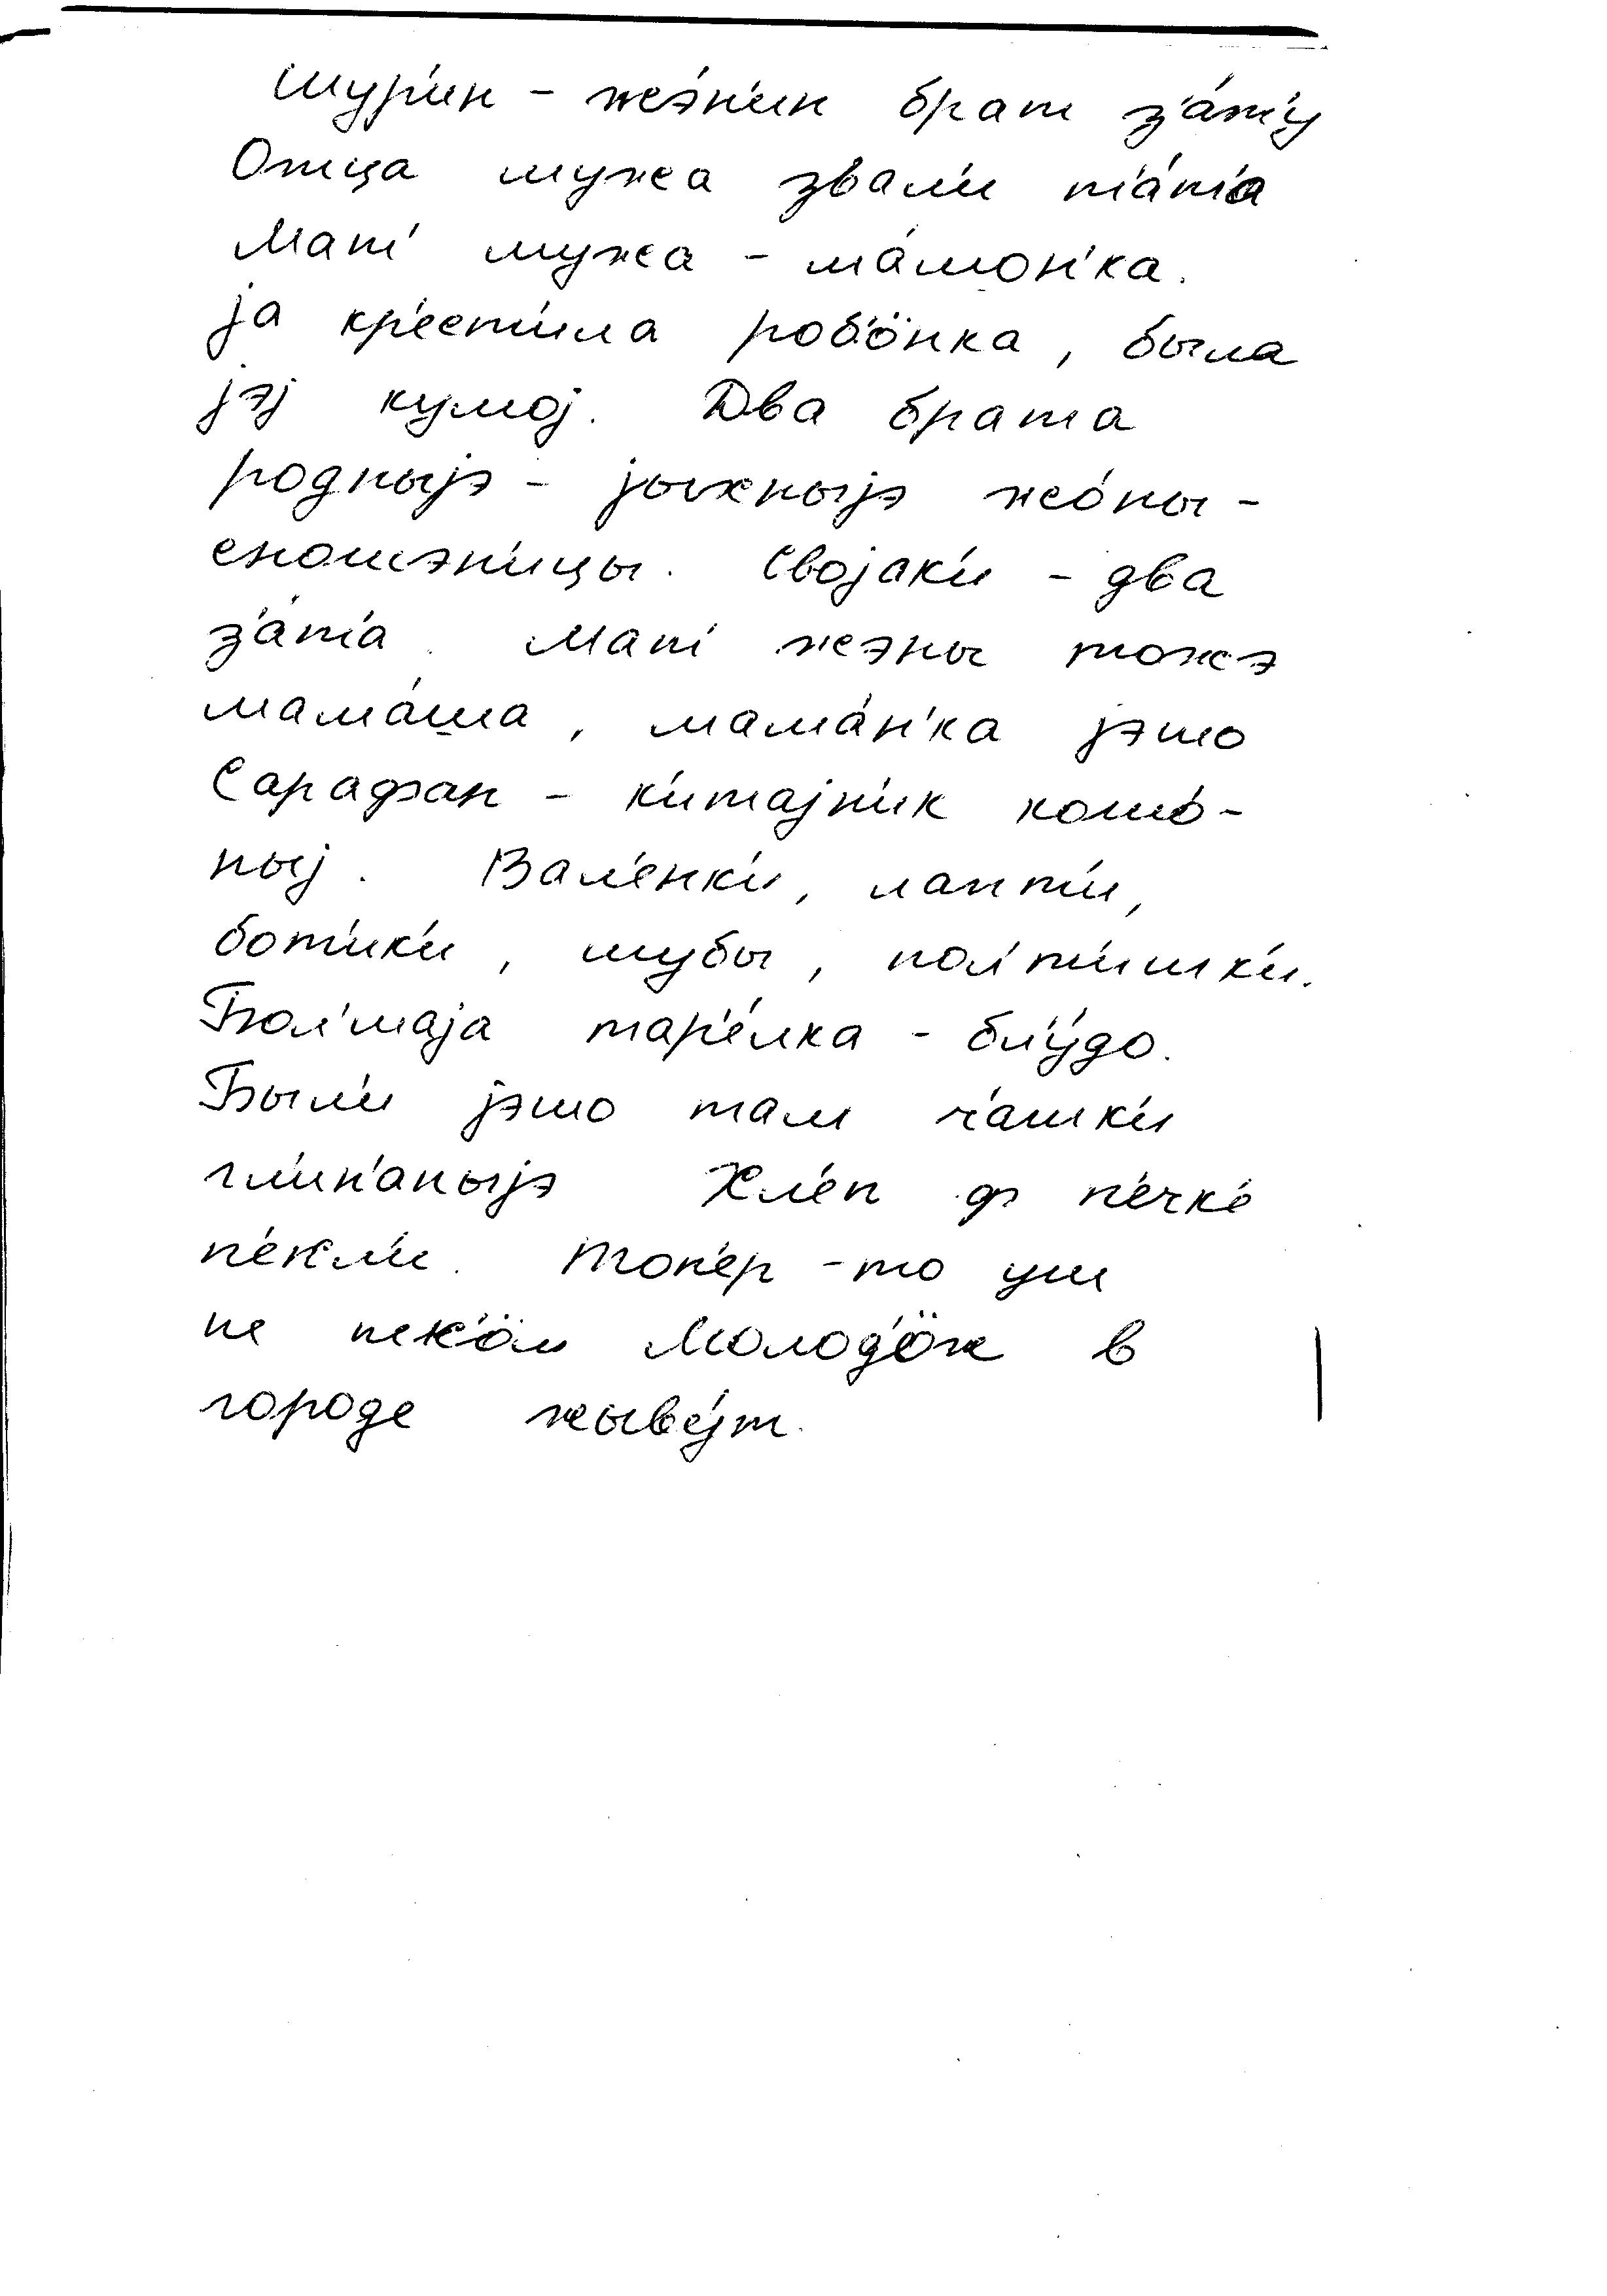 шур'ин - жэ́н'ин брат з'а́т'у
Отца мужа звал'и т'а́т'а
Мат' мужа - ма́мон'ка.
jа кр'ест'ила роб'ӧнка, была
jэj кумоj. Два брата
родныjэ - jыхныjэ жо́ны -
сношэн'ицы. Своjак'и - два
з'а́т'а. Мат' жэны тожэ
мама́ша, мама́н'ка jэшо
Сарафан - к'итаjн'ик кошо́-
ныj. Вал'енк'и, лапт'и,
бот'ик'и, шубы, пол'т'ишк'и.
Бол'шаjа тар'е́лка - бл'у́до.
Был'и jэшо там ч'ашк'и
гл'ин'аныjэ Хл'еп ф п'ечк'е
п'екл'и. Топ'ер-то уш
не пек'ӧм Молод'ӧж в
городе жыве́jт.